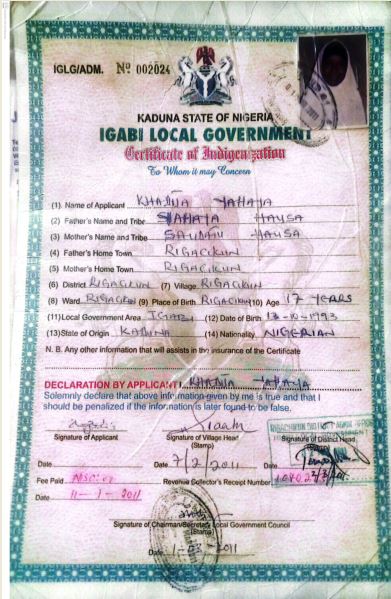 IGLG/ADM. Nº 002024
KADUNA STATE OF NIGERIA
IGABI LOCAL GOVERNMENT
Certificate of Indigenization
To Whom it may Concern
(1) Name of Applicant KHADIJA YAHAYA
(2) Father's Name and Tribe YAHAYA HAUSA
(3) Mother's Name and Tribe SAUDATU HAUSA
(4) Father's Home Town RIGACIKUN
(5) Mother's Home Town RIGACIKUN
(6) District RIGACIKUN (7) Village RIGACIKUN
(8) Ward RIGACIKUN (9) Place of Birth RIGACIKUN 10) Age 17 YEARS
(11) Local Government Area IGABI (12) Date of Birth 13-10-1993
(13) State of Origin KADUNA (14) Nationality. NIGERIAN
N. B. Any other information that will assists in the insurance of the Certificate
DECLARATION BY APPLICANT I, KHADIJA YAHAYA
Solemnly declare that above information given by me is true and that I
should be penalized if the information is later found to be false.
Signature of Applicant Signature of Village Head Signature of District Head
(Stamp) (Stamp)
Date Date 7/2/2011 Date
Fee Paid Revenue Collector's Receipt Number
Date 11-1-2011
Signature of Chairman/Secretary Local Government Council
(Stamp)
Date 1-03-2011